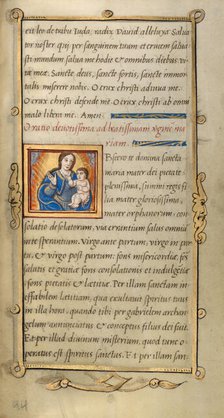 cit leo de tribu Juda, radix David alleluya. Salua
tor noster qui per sanguinem tuum et crucem salua
sti mundum salua me hodie & omnibus diebus vi
tæ meæ. Sancte deus, sancte fortis, sancte immor
talis miserere nobis. O crux christi adiuua me.
O crux christi defende me. O crux christi ab omni
malo libera me. Amen.
Oratio deuotissima ad beatissimam virginē ma
riam.
Bsecro te domina sancta
maria mater dei pietate
plenissima, summi regis fi
lia mater gloriosissima,
mater orphanorum, con
solatio desolatorum, via errantium salus omnium
in te sperantium. Virgo ante partum, virgo in par
tu, & virgo post partum: fons misericordiæ, fons
salutis et gratiæ fons consolationis et indulgētiæ
fons pietatis & lætitiæ. Per illam sanctam in
effabilem Letitiam, qua exultauit spiritus tuus
in illa hora, quando tibi per gabrielem archan
gelum annunciatus & conceptus filius dei fuit.
Et per illud diuinum misterium, quod tunc o
peratus est spiritus sanctus. Et per illam san